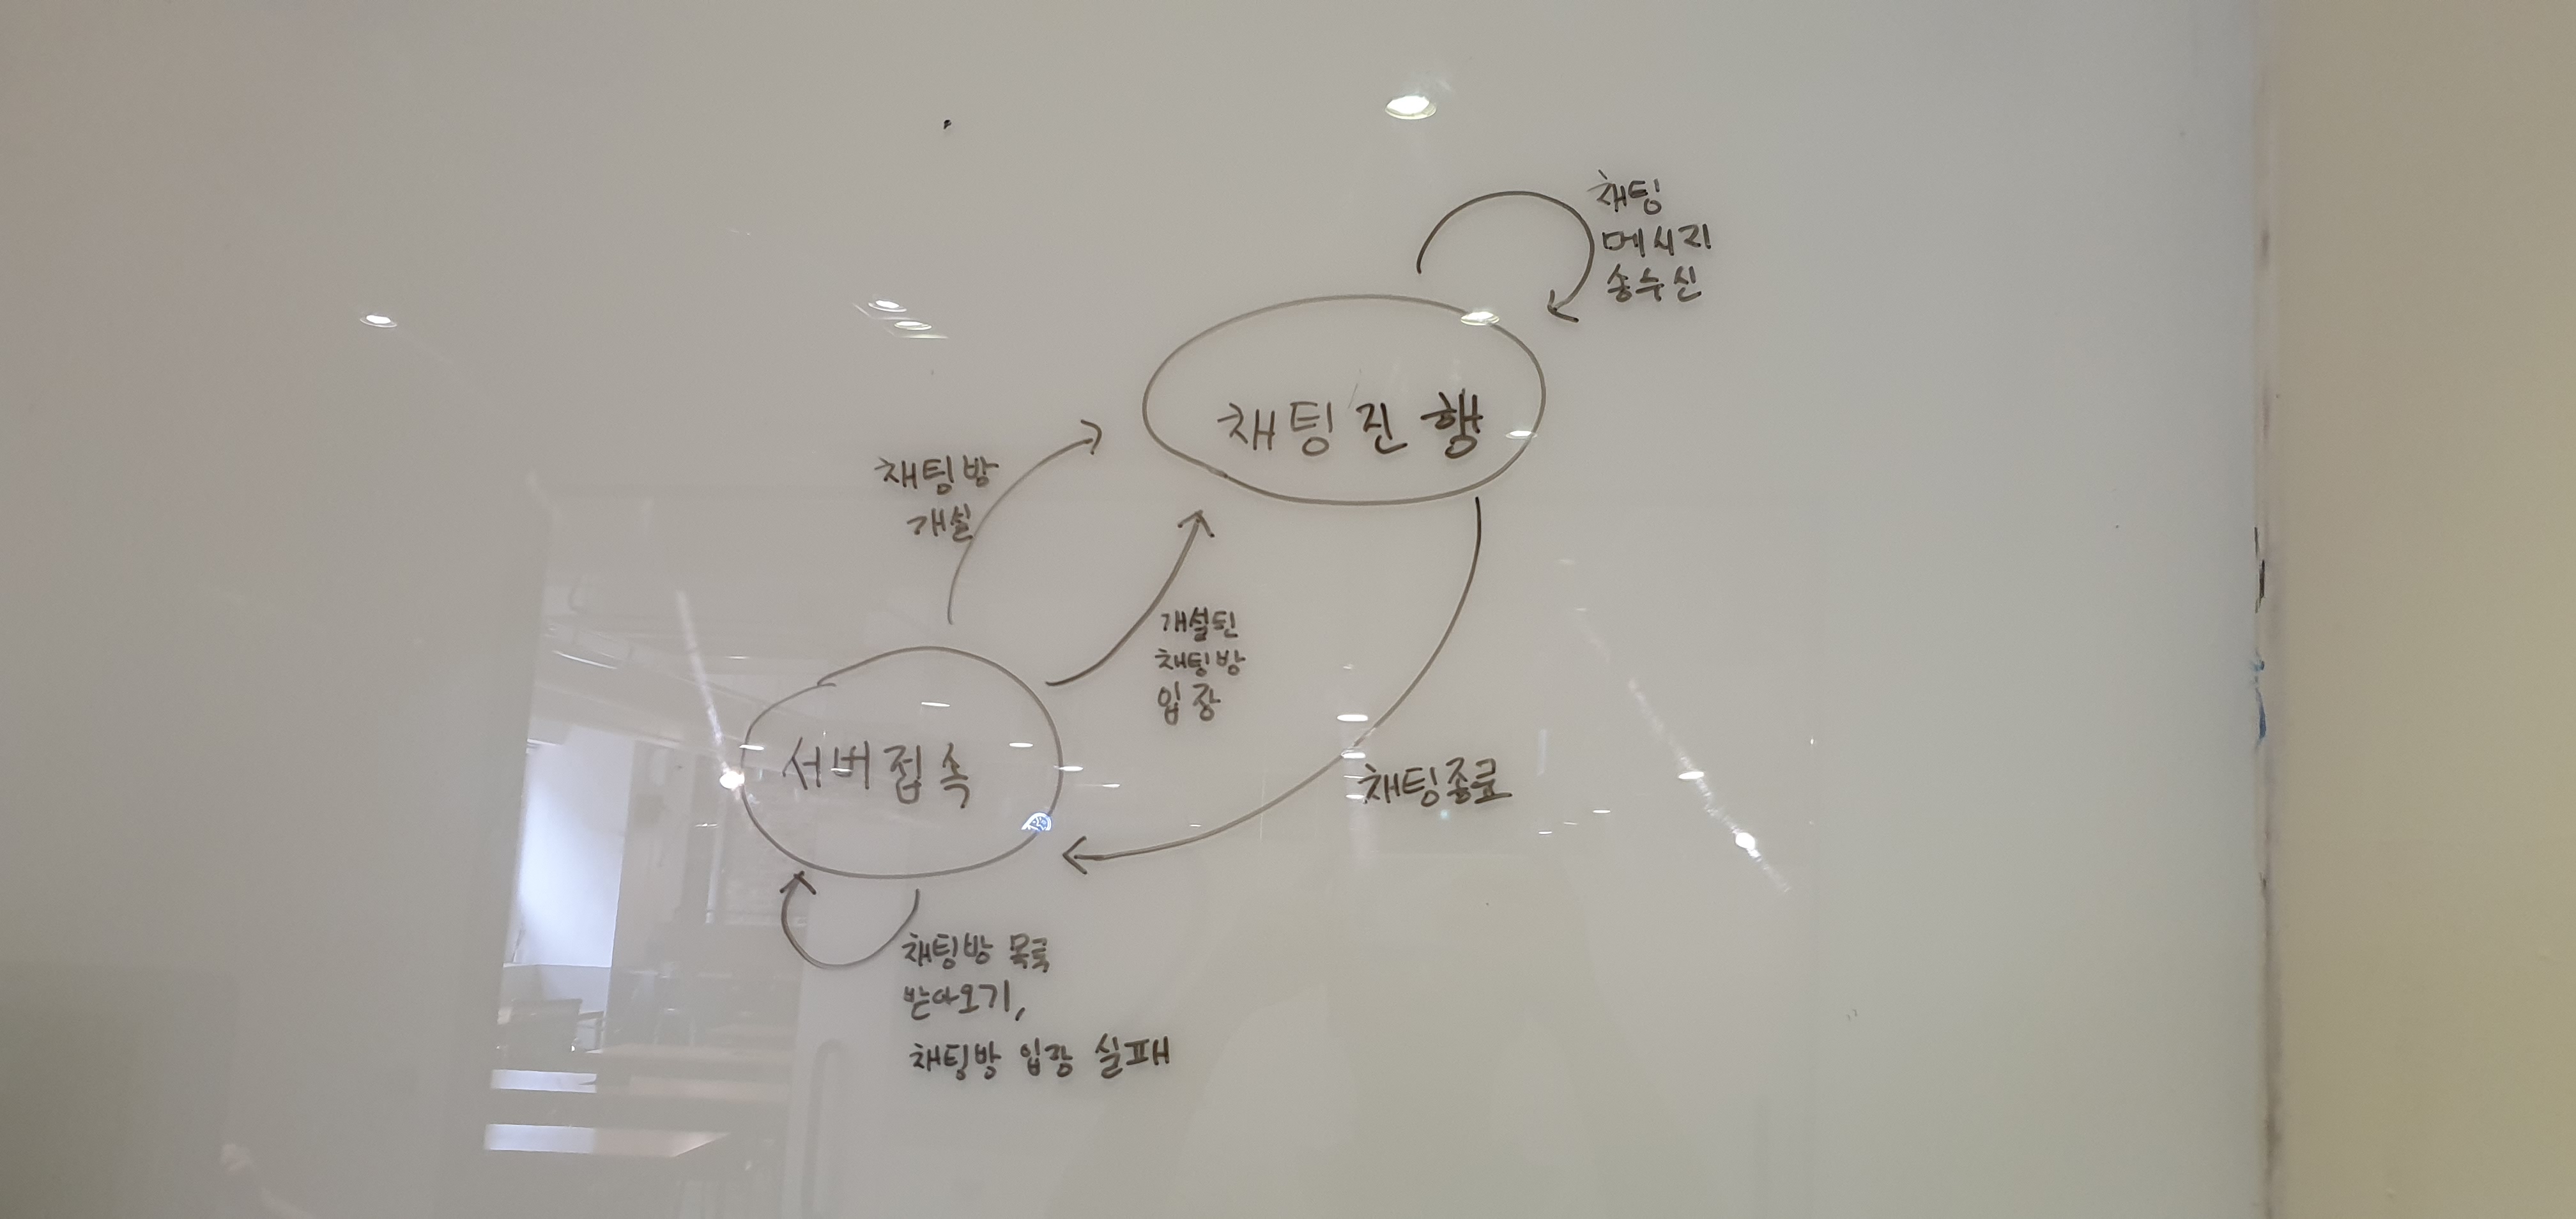 채팅
메시지
송수신
채팅진행
채팅방
개설
개설된
채팅방
입장
서버접속
채팅종료
채팅방 목록
받아오기,
채팅방 입장 실패